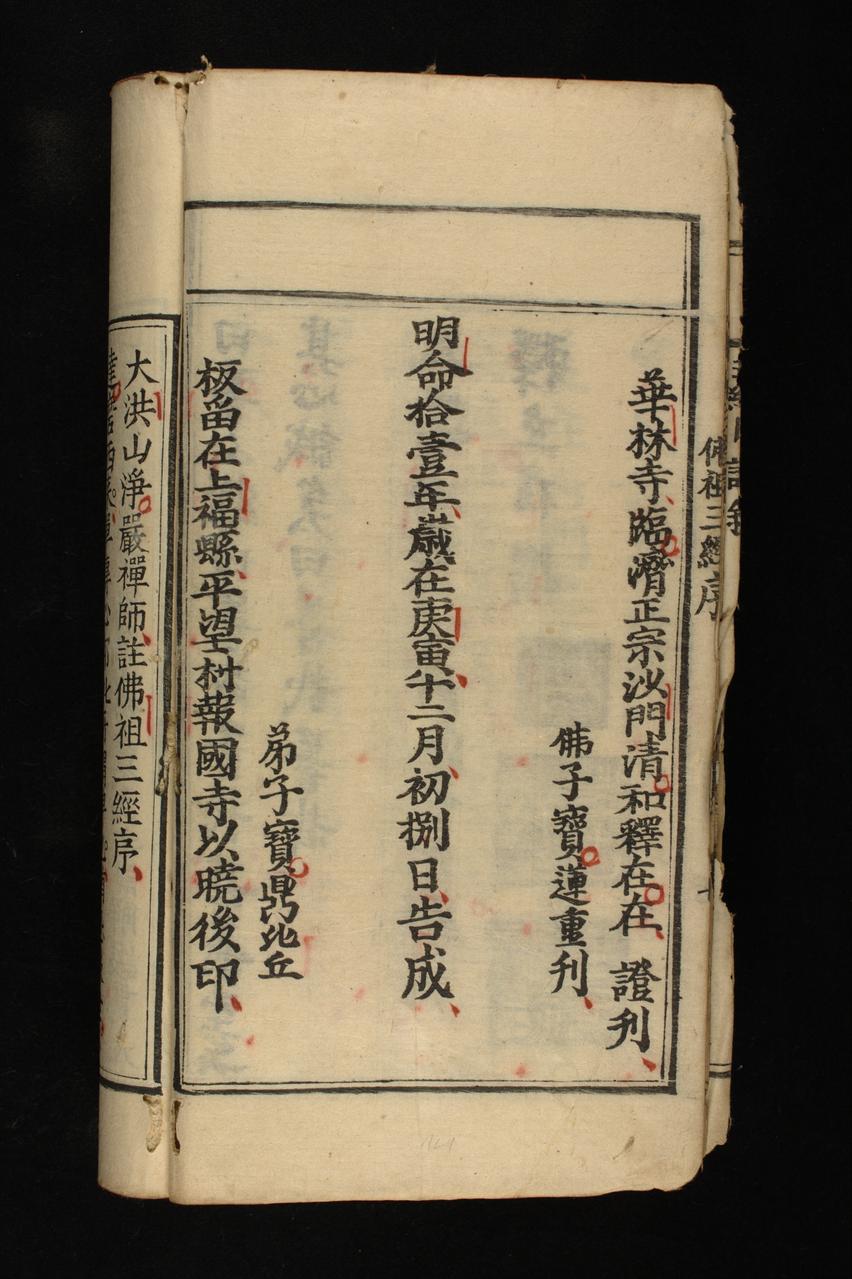 佛祖三經序
華林寺臨濟正宗沙門清和釋在在 證刋
佛子寶蓮重刋
明命拾壹年歲在庚寅十二月初捌日告成
弟子寶鼎比丘
板留在上福縣平望村報國寺以曉後印
大洪山淨嚴禪師註佛祖三經序